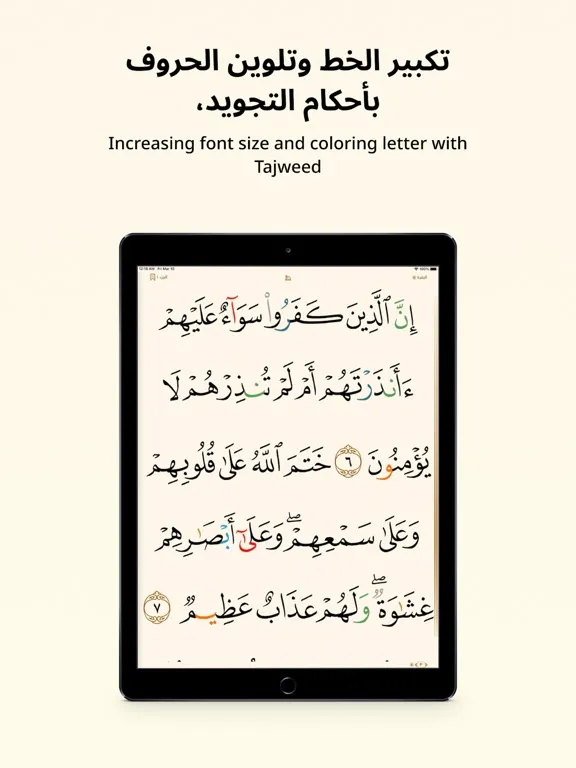 تكبير الخط وتلوين الحروف
بأحكام التجويد،
Increasing font size and coloring letter with
Tajweed
12:18 AM Fri Mar 10
100%
إِنَّ ٱلَّذِينَ كَفَرُوا۟ سَوَآءٌ عَلَيْهِمْ
ءَأَنذَرْتَهُمْ أَمْ لَمْ تُنذِرْهُمْ لَا
يُؤْمِنُونَ ٦ خَتَمَ ٱللَّهُ عَلَىٰ قُلُوبِهِمْ
وَعَلَىٰ سَمْعِهِمْ ۖ وَعَلَىٰٓ أَبْصَـٰرِهِمْ
غِشَـٰوَةٌ ۖ وَلَهُمْ عَذَابٌ عَظِيمٌ ٧